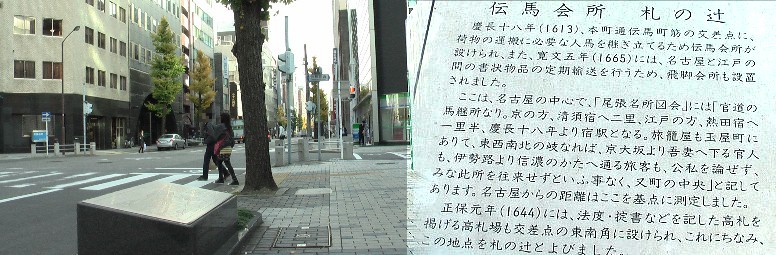 伝馬会所 札の辻
慶長十八年(1613)、本町通伝馬町筋の交差点に、
荷物の運搬に必要な人馬を継ぎ立てるため伝馬会所が
設けられ、また、寛文五年(1665)には、名古屋と江戸の
間の書状物品の定期輸送を行うため、飛脚会所も設置
されました。
ここは、名古屋の中心で、「尾張名所図会」には「官道の
馬継所なり。京の方、清須宿へ二里、江戸の方、熱田宿へ
一里半、慶長十八年より宿駅となる。旅籠屋も玉屋町に
ありて、東西南北の岐なれば、京大坂より吾妻へ下る官人
も、伊勢路より信濃のかたへ通る旅客も、公私を論ぜず、
みな此所を往来せずといふ事なく、又町の中央」と記して
あります。名古屋からの距離はここを基点に測定しました。
正保元年(1644)には、法度・掟書などを記した高札を
掲げる高札場も交差点の東南角に設けられ、これにちなみ、
この地点を札の辻とよびました。